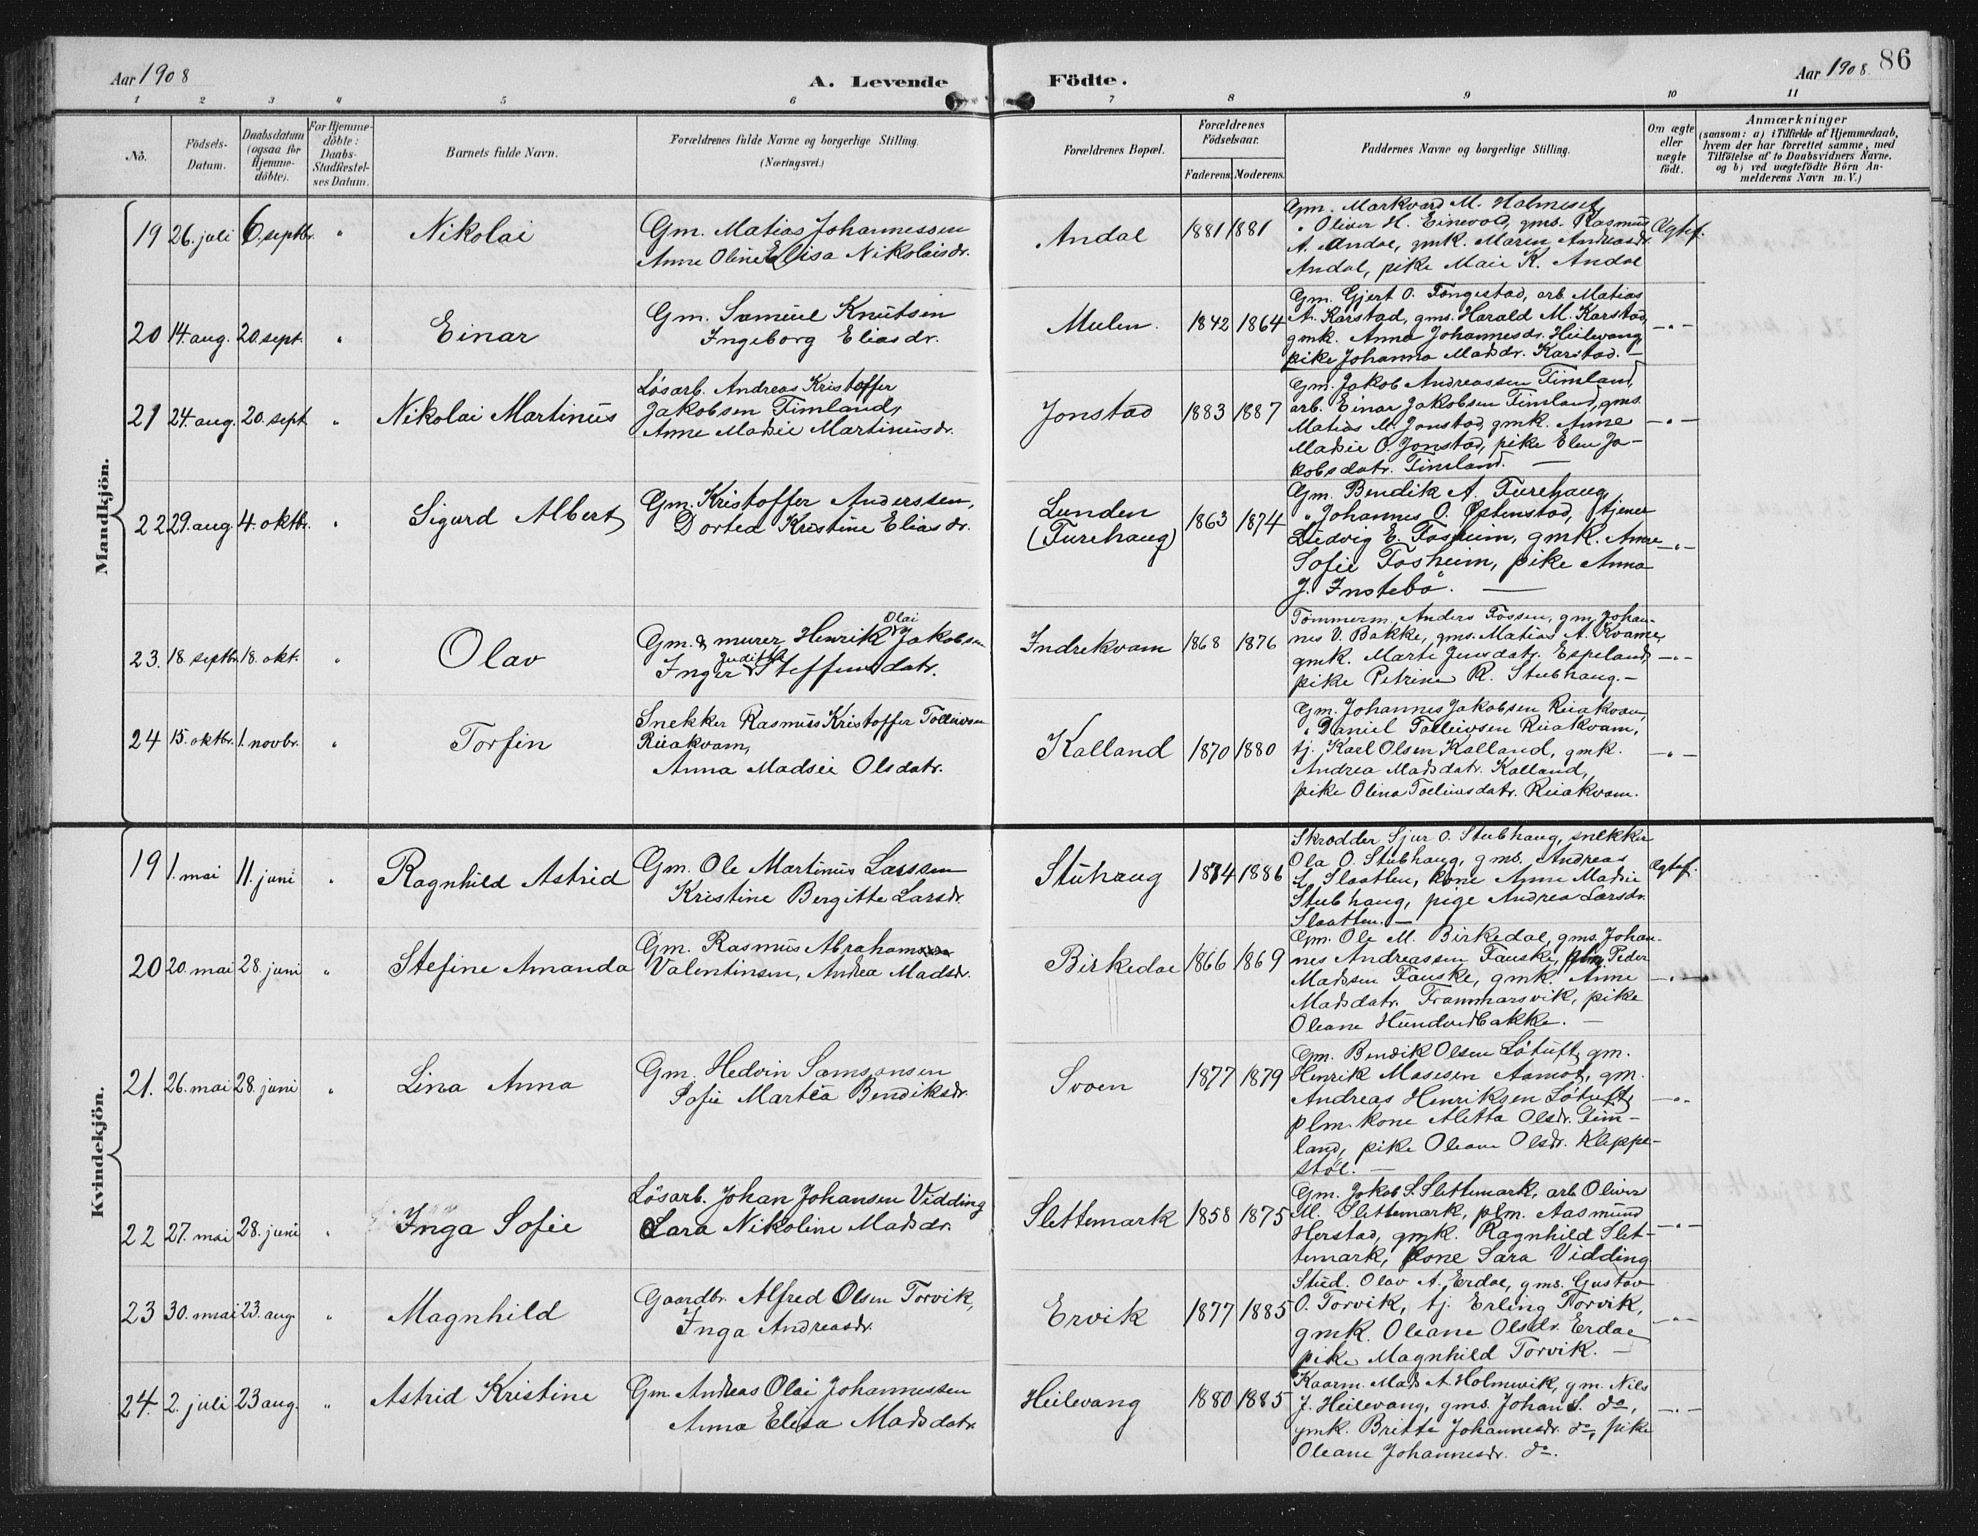 Aar 1908
A. Levende
Födte.
Aar 1908.
86
1 2 3 4 5 6 7 8 9 10 11
No.
Födsels-
Datum.
Daabsdatum
(ogsaa for
Hjemme-
döbte).
For Hjemme-
döbte:
Daabs-
Stadfæstel-
ses Datum.
Barnets fulde Navn.
Forældrenes fulde Navne og borgerlige Stilling.
(Næringsvei.)
Forældrenes Bopæl.
Forældrenes
Födselsaar.
Faderens. Moderens.
Faddernes Navne og borgerlige Stilling.
Om ægte
eller
uægte
födt.
Anmærkninger
(saasom: a) i Tilfælde af Hjemmedaab,
hvem der har forrettet samme, med
Tilföielse af to Daabsvidners Navne,
og b) ved uægtefödte Börn An-
melderens Navn m. V.)
Mandkjön.
19 26. juli 6. septbr. " Nikolai
Gm. Matias Johannessen
Anne Oline Elisa Nikolaisdr.
Andal 1881 1881
Gm. Markvard M. Holmeset,
" Oliver H. Einevold, gms. Rasmus
A. Andal, gmk. Maren Andreasdr.
Andal, pike Maie K. Andal
Ægtef.
20 14. aug. 20. sept. " Einar
Gm. Samuel Knutsen
Ingeborg Eliasdr.
Mulen. 1842 1864
Gm. Gjert O. Tongestad, arb. Matias
A. Karstad, gms. Harald M. Karstad,
gmk. Anna Johannesdr. Heilevang,
pike Johanna Madsdr. Karstad. —
— " —
21 24. aug. 20. sept " Nikolai Martinus
Løsarb. Andreas Kristoffer
Jakobsen Timland,
Anne Madsie Martinusdr.
Jonstad 1883 1887
Gm. Jakob Andreassen Timland,
arb. Einar Jakobsen Timland, gms.
Matias M. Jonstad, gmk. Anne
Madsie O. Jonstad, pike Elen Ja-
kobsdatr. Timland. —
— " —
22 29. aug. 4. oktbr. " Sigurd Albert
Gm. Kristoffer Anderssen,
Dortea Kristine Eliasdr.
Lunden
(Furehaug) 1863 1874
Gm. Bendik A. Furehaug,
" Johannes O. Øptenstad, tjener
Ludvig E. Fosheim, gmk. Anne
Sofie Fosheim, pike Anna
J. Instebø. —
— " —
23. 18. septbr. 18. okt. " Olav
Gm. & murer Henrik Olai Jakobsen
Inger Juditte Steffensdatr.
Indrekvam 1868 1876
Tømmerm. Anders Fossen, gm. Johan-
nes V. Bakke, gms. Matias A. Kvame,
gmk. Marte Jensdatr. Espeland,
pike Petrine R. Stubhaug. —
— " —
24 15. oktbr. 1. novbr. " Torfin
Snekker Rasmus Kristoffer Tolleivsen
Riiakvam,
Anna Madsie Olsdatr.
Kalland 1870 1880
Gm. Johannes Jakobsen Riiakvam,
" Daniel Tolleivsen Riiakvam,
tj. Karl Olsen Kalland, gmk.
Andrea Madsdatr. Kalland,
pike Olina Tolleivsdatr. Riiakvam.
— " —
Kvindekjön.
19 1. mai 11. juni " Ragnhild Astrid
Gm. Ole Martinus Larssen
Kristine Bergitte Larsdr.
Stuhaug 1874 1886
Skrædder Sjur O. Stubhaug, snekker
Ola O. Stubhaug, gms. Andreas
L. Slaatten, kone Anne Madsie
Stubhaug, pige Andrea Larsdr.
Slaatten. —
Ægtef.
20 20. mai 28. juni " Stefine Amanda
Gm. Rasmus Abraham
Valentinsen, Andrea Madsdr.
Birkedal 1866 1869
Gm. Ole M. Birkedal, gms. Johan-
nes Andreassen Fauske, plm. Peder
Madssen Fauske, gmk. Anne
Madsdatr. Frammarsvik, pike
Oleane Hundvedbakke. —
— " —
21. 26. mai 28. juni " Lina Anna
Gm. Hedvin Samsonsen
Sofie Martea Bendiksdr.
Svoen 1877 1879
Gm. Bendik Olsen Løtuft, gm.
Henrik Masesen Aamot, gm.
Andreas Henriksen Løtuft,
plm. kone Aletta Olsdr. Tim-
land, pike Oleane Olsdr. Kleppe-
støl. —
— " —
22 27. mai 28. juni " Inga Sofie
Løsarb. Johan Johansen Vidding
Sara Nikoline Madsdr.
Slettemark 1858 1875
Gm. Jakob S. Slettemark, arb. Oliver
M. Slettemark, plm. Aasmund
Herstad, gmk. Ragnhild Slet-
temark, kone Sara Vidding
— " —
23 30. mai 23. aug. " Magnhild
Gaardbr. Alfred Olsen Torvik,
Inga Andreasdr.
Ervik 1877 1885
Stud. Olav A. Erdal, gms. Gustav
O. Torvik, tj. Erling Torvik,
gmk. Oleane Olsdr. Erdal
pike Magnhild Torvik. —
— " —
24. 2. juli 23 aug. " Astrid Kristine
Gm. Andreas Olai Johannessen
Anna Elisa Madsdatr.
Heilevang 1880 1885
Kaarm. Mads A. Holmevik, gm. Nils
J. Heilevang, gms. Johan S. do,
gmk. Britte Johannesdr. do, pike
Oleane Johannesdr. do.
— " —